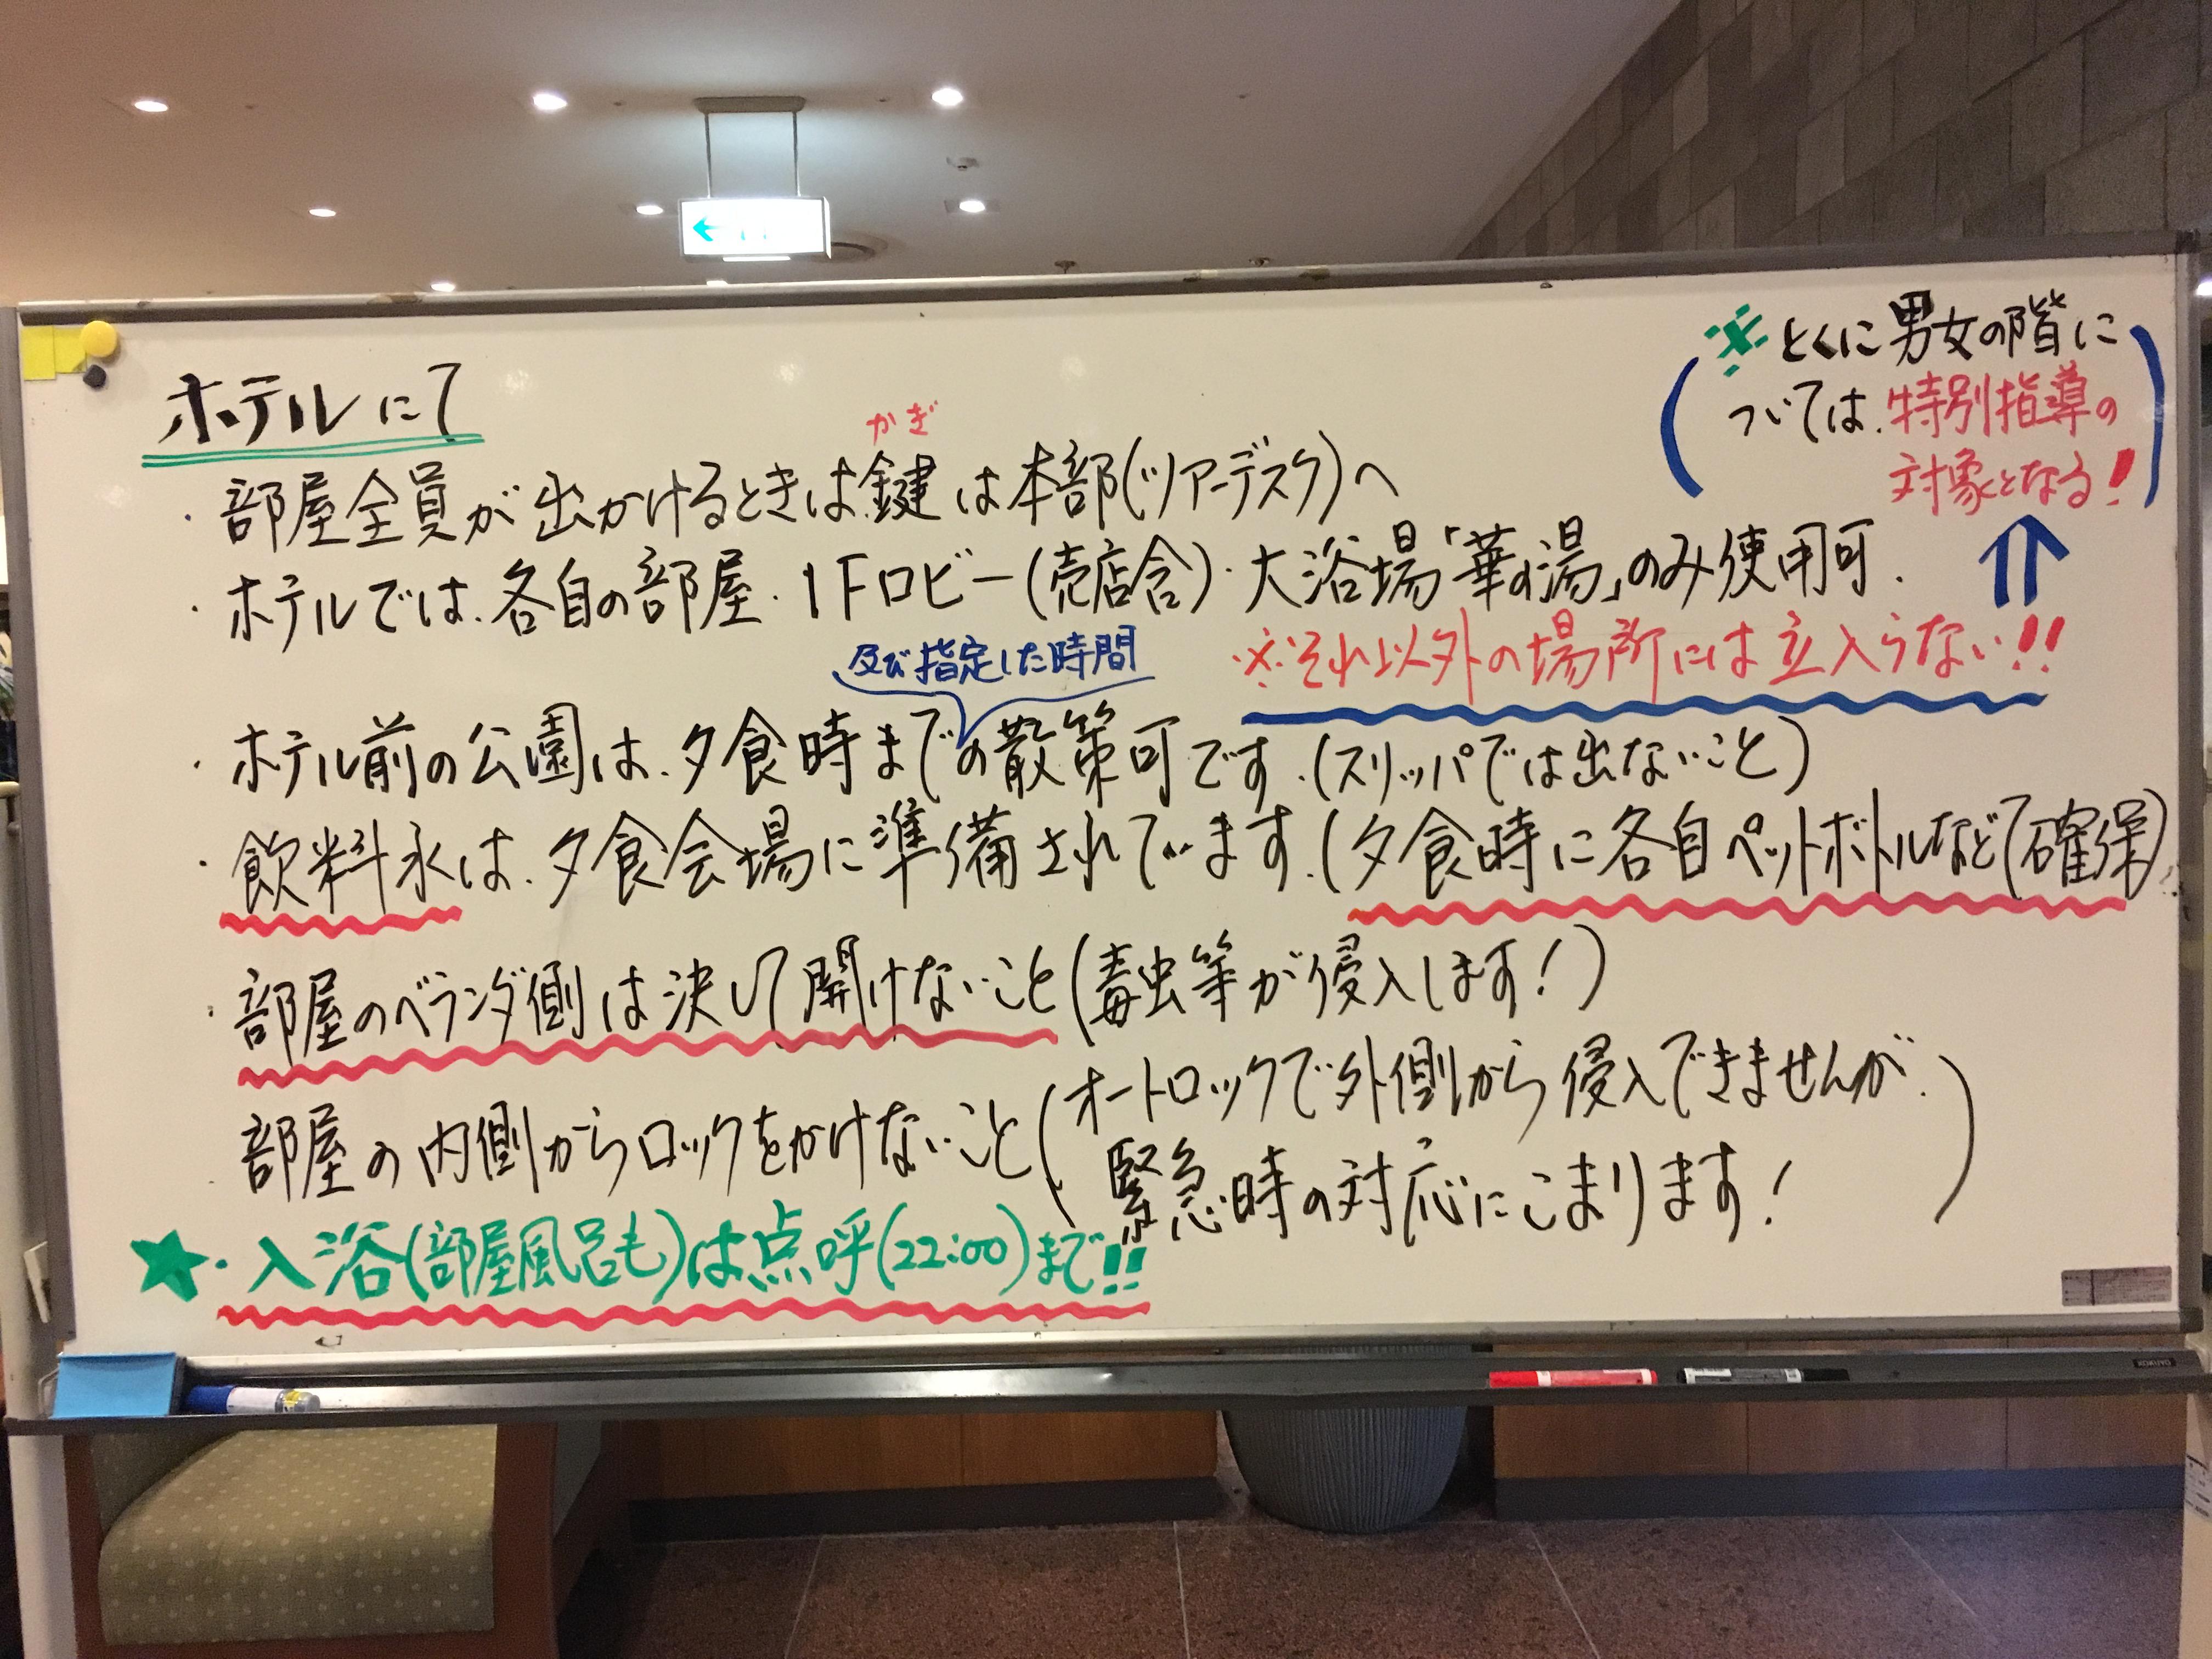 ホテルにて
※とくに男女の階に
ついては、特別指導の
対象となる!
かぎ
・部屋全員が出かけるときは鍵は本部(ツアーデスク)へ
・ホテルでは、各自の部屋・1Fロビー(売店含)・大浴場「華の湯」のみ使用可.
※それ以外の場所には立入らない!!
及び指定した時間
・ホテル前の公園は、夕食時までの散策可です.(スリッパでは出ないこと)
・飲料水は、夕食会場に準備されています.(夕食時に各自ペットボトルなどで確保)
・部屋のベランダ側は決して開けないこと(毒虫等が侵入します!)
・部屋の内側からロックをかけないこと(オートロックで外側から侵入できませんが、
緊急時の対応にこまります!)
★・入浴(部屋風呂も)は点呼(22:00)まで!!